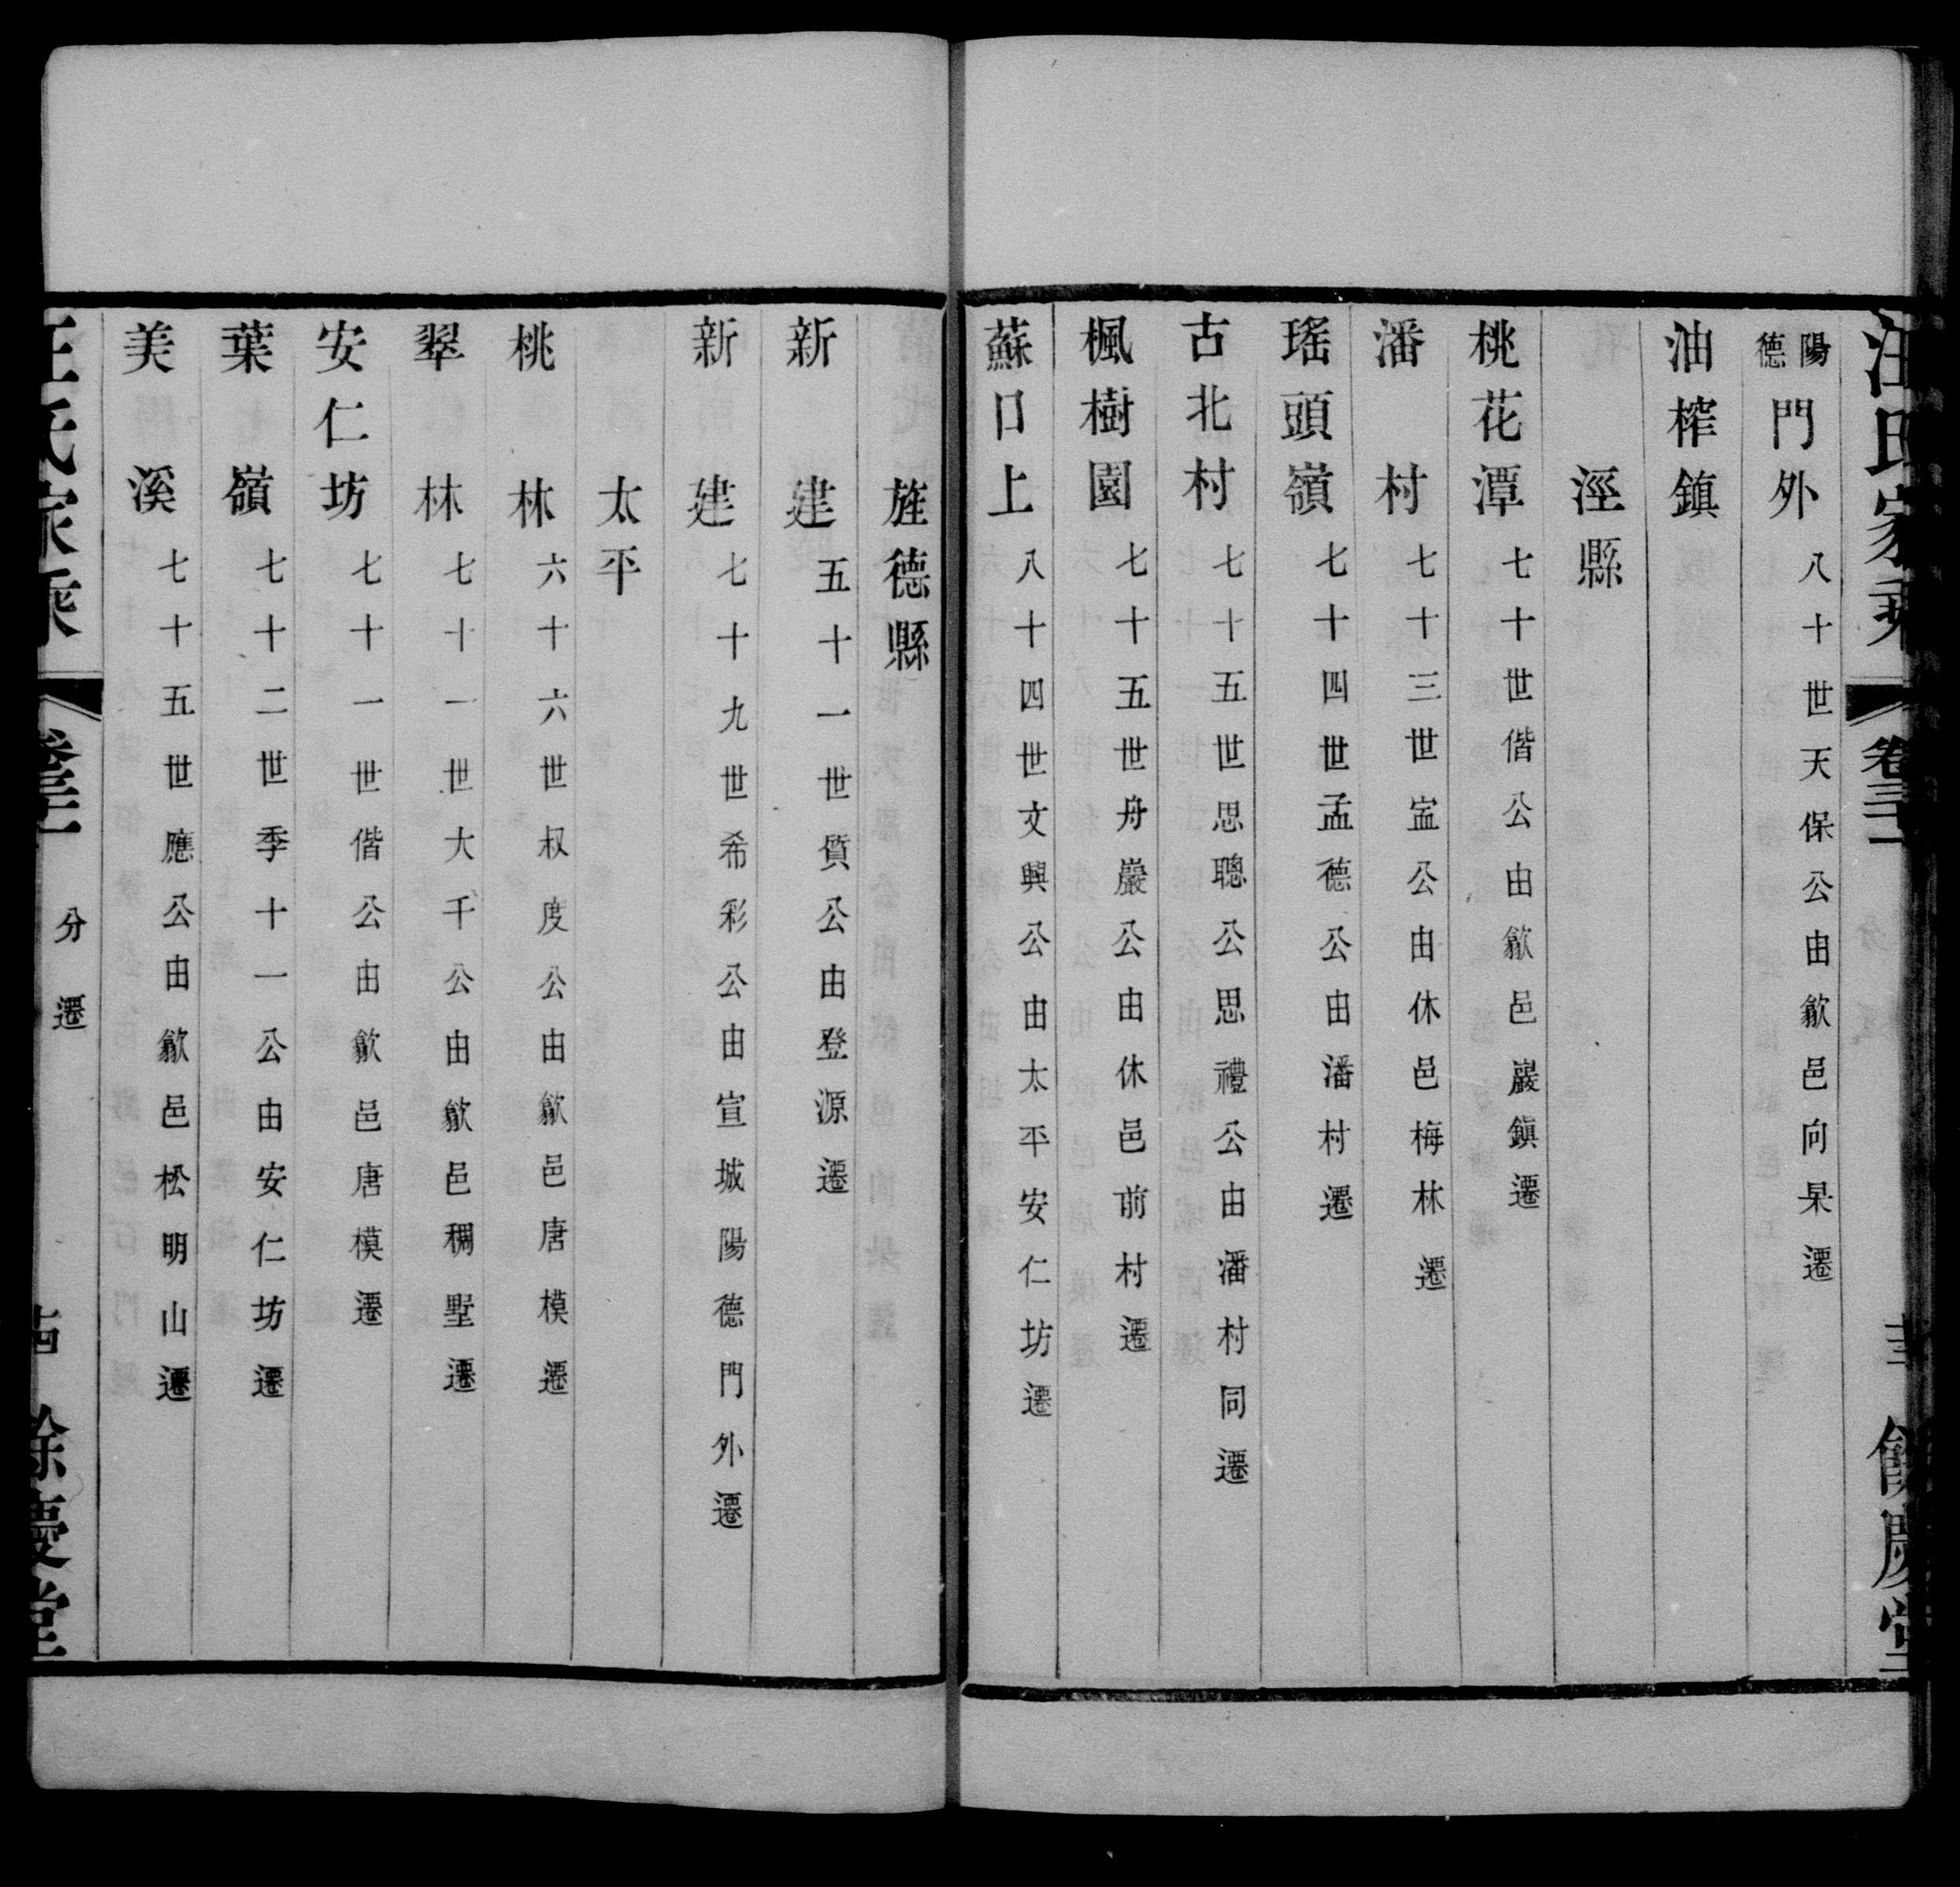 汪氏家乘 卷三二 餘慶堂
陽德門外 八十世天保公由歙邑向杲遷
油榨鎮
涇縣
桃花潭 七十世偕公由歙邑巖鎮遷
潘村 七十三世寍公由休邑梅林遷
瑤頭嶺 七十四世孟德公由潘村遷
古北村 七十五世思聰公思禮公由潘村同遷
楓樹園 七十五世舟巖公由休邑前村遷
蘇口上 八十四世文興公由太平安仁坊遷
旌德縣
新建 五十一世質公由登源遷
新建 七十九世希彩公由宣城陽德門外遷
太平
桃林 六十六世叔度公由歙邑唐模遷
翠林 七十一世大千公由歙邑稠墅遷
安仁坊 七十一世偕公由歙邑唐模遷
葉嶺 七十二世季十一公由安仁坊遷
美溪 七十五世應公由歙邑松明山遷
汪氏家乘 分遷 餘慶堂